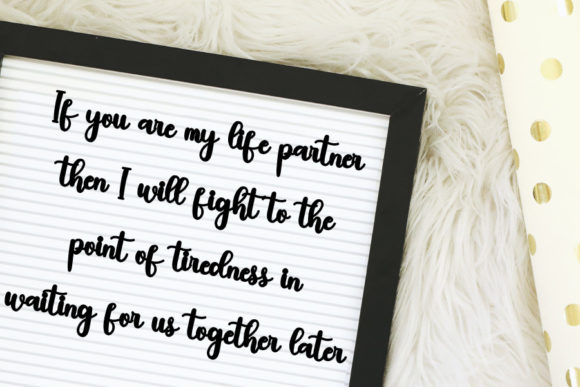 If you are my life partner
then I will fight to the
point of tiredness in
waiting for us together later